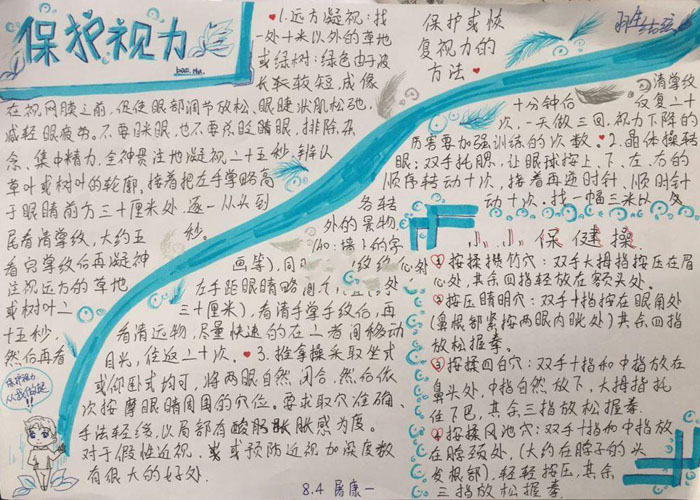 保护视力
bao hu
保护或恢
复视力的
方法
1.远方凝视:找
一处十米以外的草地
或绿树:绿色由于波
长较短,成像
在视网膜之前,促使眼部调节放松、眼睫状肌松弛,
减轻眼疲劳。不要眯眼,也不要总眨睛眼,排除杂
念、集中精力、全神贯注地凝视二十五秒,辨认
草叶或树叶的轮廓,接着把左手掌略高
于眼睛前方三十厘米处,逐一从头到
尾看清掌纹,大约五
秒。
看完掌纹后再凝神
注视远方的草地
或树叶二
十五秒,
然后再看
清掌纹
十分钟后
反复二十
次,一天做三回,视力下降的
厉害要加强训练的次数。2.晶体操转
眼:双手托腮,让眼球按上、下、左、右的
顺序转动十次,接着再逆时针、顺时针
各转
动十次。找一幅三米以
外的景物
(如:墙上的字
画等),同
左手距眼睛略
三十厘米),看清手掌手纹后,再
看清远物,尽量快速的在二者间移动
目光,往返二十次。3.推拿操采取坐式
或仰卧式均可,将两眼自然闭合,然后依
次按摩眼睛周围的穴位。要求取穴准确、
手法轻缓,以局部有酸胀感为度。
对于假性近视、或预防近视加深度数
有很大的好处.
小小保健操
①按揉攒竹穴:双手大拇指按压在眉
心处,其余四指轻放在额头处。
②按压睛明穴:双手十指按在眼角处
(鼻根部紧按两眼内眦处)其余四指
放松握拳。
③按揉四白穴:双手十指和中指放在
鼻头处,中指自然放下,大拇指托
住下巴,其余三指放松握拳.
④按揉风池穴:双手十指和中指放
在脖颈处,(大约在脖子的头
发根部),轻轻按压,其余
三指放松握拳
保护视力
从我做起
!!
8.4 屠康一